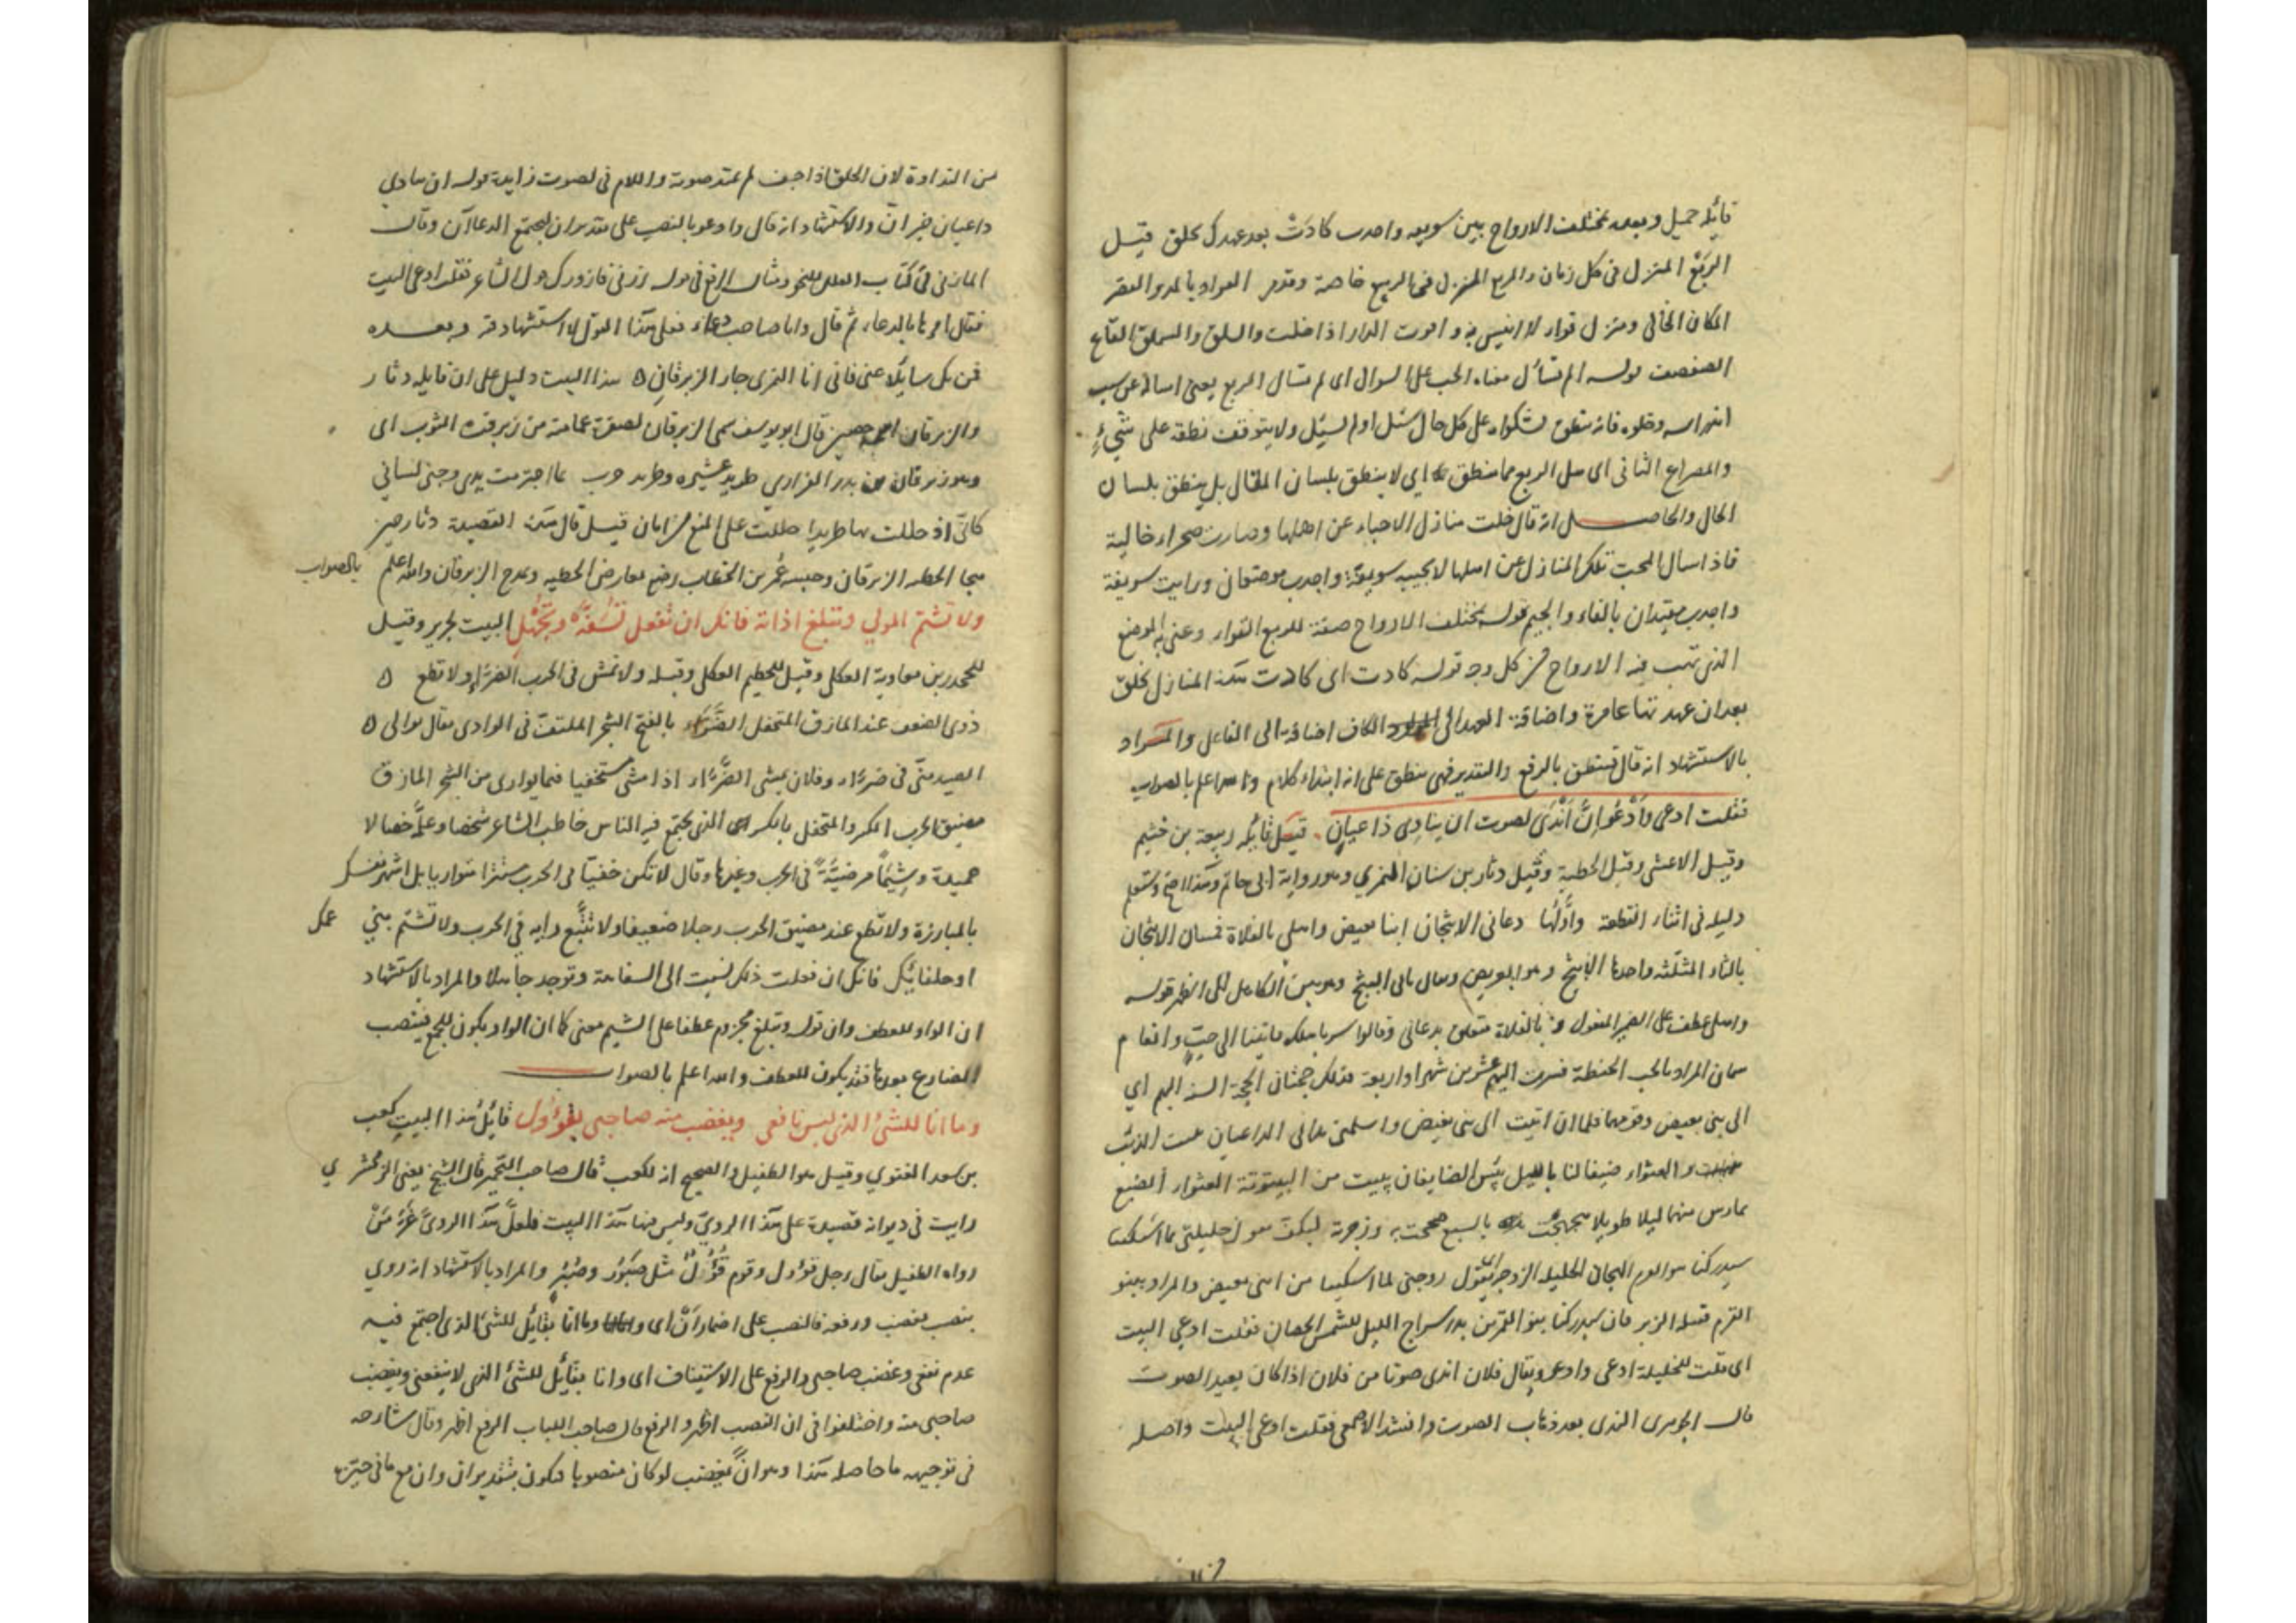 قائله جميل وبعده بمختلف الارواح بين سويقه واحدب كادت بعد عهدك تخلق قيل
الربع المنزل فى كل زمان والمربع المنزل فى الربيع خاصة وقدمر القواء بالمد والقصر
المكان الخالى ومنزل قواء لا انيس به واقوت الدار اذا خلت والسلق والسملق القاع
الصفصف قوله الم تسأل معناه الحب على السوال اى لم تسال الربع يعنى اساله عن سبب
اندراسه وخلوه فانه ينطق بشكواه على كل حال سئل او لم يسئل ولا يتوقف نطقه على شئ
والمصراع الثانى اى سل الربع مما ينطق اى لا ينطق بلسان المقال بل ينطق بلسان
الحال والحاصل انه قال خلت منازل الاحباء عن اهلها وصارت صحراء خالية
فاذا سال المحب تلك المنازل عن اهلها لا يجيبه سويقة واحدب موضعان ورايت سويقة
واجدب مقيدان بالفاء والجيم قوله بمختلف الارواح صفة للربع القواء وعنى به الموضع
الذى تهب فيه الارواح من كل وجه قوله كادت اى كادت هذه المنازل تخلق
بعد ان عهدتها عامرة واضافة العهد الى الكاف اضافة الى الفاعل والمراد
بالاستشهاد انه قال فينطق بالرفع والتقدير فهى ينطق على انه ابتداء كلام والله اعلم بالصواب
فقلت ادعى وَاَدْعُوَ اِنَّ اَنْدَى لصوت ان ينادى داعيان قيل قائله ربيعة بن خثيم
وقيل الاعشى وقيل الحطية وقيل دثار بن سنان النمري وهو رواية ابى حاتم وهذا اصح وستعلم
دليله فى اثناء القطعة واولها دعانى الاثبجان ابنا بغيض واهلى بالفلاة فمنيان الاثبجان
بالثاء المثلثة واحدها الاثبج وهو العريض
واهلى عطف على الضمير المفعول و بالفلاة متعلق بدعانى وقالوا سر باهلك فاتينا الى حب وانعام
سمان المراد بالحب الحنطة فسرت اليهم عشرين شهرا واربعة فذلك حجتان الحجة السنة اليهم اى
الى بنى بغيض وقومها فلما ان اتيت الى بنى بغيض واسلمنى
والعثواء ضيفا لنا بالليل بئس الضايفان يبيت من البيتوتة العثواء الضبع
يمارس منهما ليلا طويلا يهجهجت بالسبع صحت به وزجرته ليكف تقول حليلتى لما اشتكينا
سيدركنا بنو القوم الهجان الحليلة الزوجة يقول زوجتى لما اشتكينا من ابنى بغيض والمراد ببنو
القرم قبيلة الزبرقان سيدركنا بنو القمر بن بدر سراج الليل للشمس الحصان فقلت ادعى البيت
اى قلت للحليلة ادعى وادعو ويقال فلان اندى صوتا من فلان اذا كان بعيد الصوت
قال الجوهرى الندى بعد ذهاب الصوت وانشد الاصمعى فقلت ادعى البيت واصله
من النداوة لان الحلق اذا جف لم يمتد صوته واللام فى لصوت زايدة قوله ان ينادى
داعيان خبر انّ والاستشهاد انه قال وادعو بالنصب على تقدير ان ليجتمع الدعاآن وقال
المازنى فى كتاب العلل للنحو ومثال الرفع فى قوله زرنى فازورك قول الشاعر فقلت ادعى البيت
فقال امرها بالدعاء ثم قال وانا صاحب دعاء فعلى هذا القول لا استشهاد فيه وبعده
فمن يك سايلا عنى فانى انا النمرى جار الزبرقان هذا البيت دليل على ان قايله دثار
والزبرقان اسمه حصين قال ابو يوسف سمى الزبرقان لصفرة عمامته من زبرقت الثوب اى
وهو زبرقان بن بدر الفزارى طريد عشيره وطريد حرب بما اجترمت يدى وجنى لسانى
كانّى اذ حللت بها طريدا حللت على الممنع من ابان قيل قال هذه القصيدة دثار حين
هجا الحطيه الزبرقان وحبسه عمر بن الخطاب رضع يعارض الحطيه ويمدح الزبرقان والله اعلم بالصواب
ولا تشتم المولى وتبلغ اذاته فانك ان تفعل تسفّه وتجهل البيت لجرير وقيل
لجحدر بن معاوية العكلى وقيل للخطيم العكلى وقبله ولا تمش فى الحرب الضراء ولا تطع
ذوى الضعف عند المازق المتحفل الضراء بالفتح الشجر الملتف فى الوادى يقال توارى
الصيد منّى فى ضراء وفلان يمشى الضراء اذا مشى مستخفيا فيما يوارى من الشجر المازق
مضيق الحرب المكر والمتحفل بالكسر الذى يجتمع فيه الناس خاطب الشاعر شخصا وعلّمه خصالا
حميدة وشيما مرضيّة فى الحرب وغيرها وقال لا تكن خفيّا فى الحرب مستترا متواريا بل اشهر نفسك
بالمبارزة ولا تطع عند مضيق الحرب رجلا ضعيفا ولا تتبع رايه فى الحرب ولا تشتم بنى عمك
او حلفائك فانك ان فعلت ذلك نسبت الى السفاهة وتوجد جاهلا والمراد بالاستشهاد
ان الواو للعطف وان قوله وتبلغ مجزوم عطفا على الشتم معنى كما ان الواو يكون للجمع فينتصب
المضارع بعدها فقد يكون للعطف والله اعلم بالصواب
وما انا للشئ الذى ليس نافعى ويغضب منه صاحبى بقؤول قائل هذا البيت كعب
بن سعد الغنوي وقيل هو الطفيل والصحيح انه لكعب قال صاحب التخمير قال الشيخ يعنى الزمخشري
رايت فى ديوانه قصيدة على هذا الروى وليس فيها هذا البيت فلعلّ هذا الروى غرّ من
رواه الطفيل يقال رجل قؤول وقوم قُؤُل مثل صبور وصُبُر والمراد بالاستشهاد انه روى
بنصب يغضب ورفعه فالنصب على اضمار اَنْ اى وما انا بقائل للشئ الذى اجتمع فيه
عدم نفعى وغضب صاحبى والرفع على الاستيناف اى وانا بقايل للشئ الذى لا ينفعنى ويغضب
صاحبى منه واختلفوا فى ان النصب اظهر والرفع قال صاحب اللباب الرفع اظهر وقال شارحه
فى توجيهه ما حاصله هذا وهو انّ يغضب لو كان منصوبا فيكون بتقدير ان وان مع ما فى حيزها